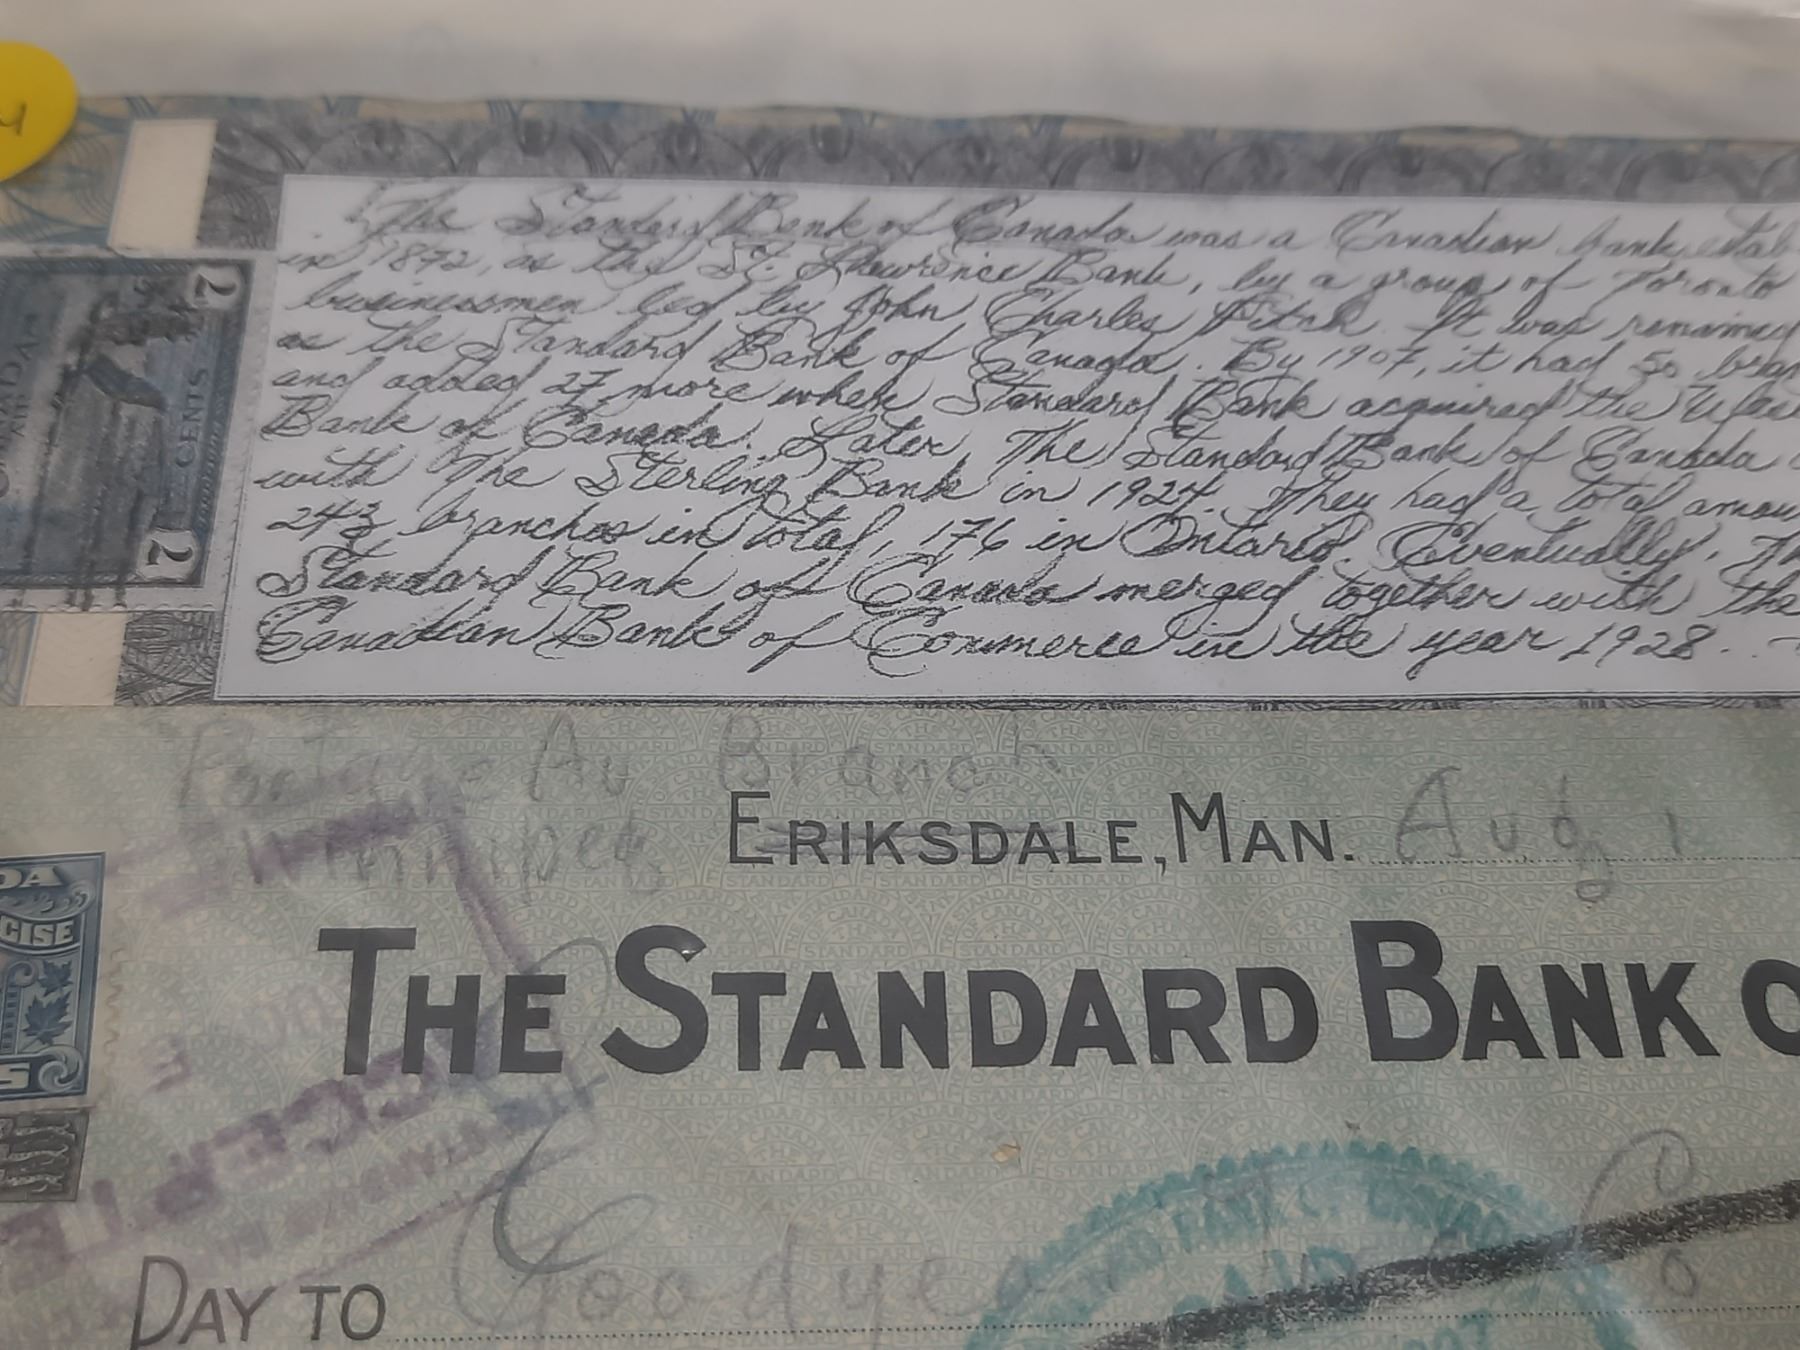 The Standard Bank of Canada was a Canadian bank estab
in 1872, as the St. Lawrence Bank, by a group of Toronto
businessmen led by John Charles Fitch. It was renamed
as the Standard Bank of Canada. By 1907, it had 50 bran
and added 27 more when Standard Bank acquired the
Bank of Canada. Later, The Standard Bank of Canada
with The Sterling Bank in 1924. They had a total amou
243 branches in total, 176 in Ontario. Eventually, Th
Standard Bank of Canada merged together with the
Canadian Bank of Commerce in the year 1928.
2
CENTS
2
Portage Av Branch
Winnipeg
ERIKSDALE, MAN. Aug 1
DA
CISE
S
THE STANDARD BANK O
ACCEPTE
DAY TO Goodyear
PAID